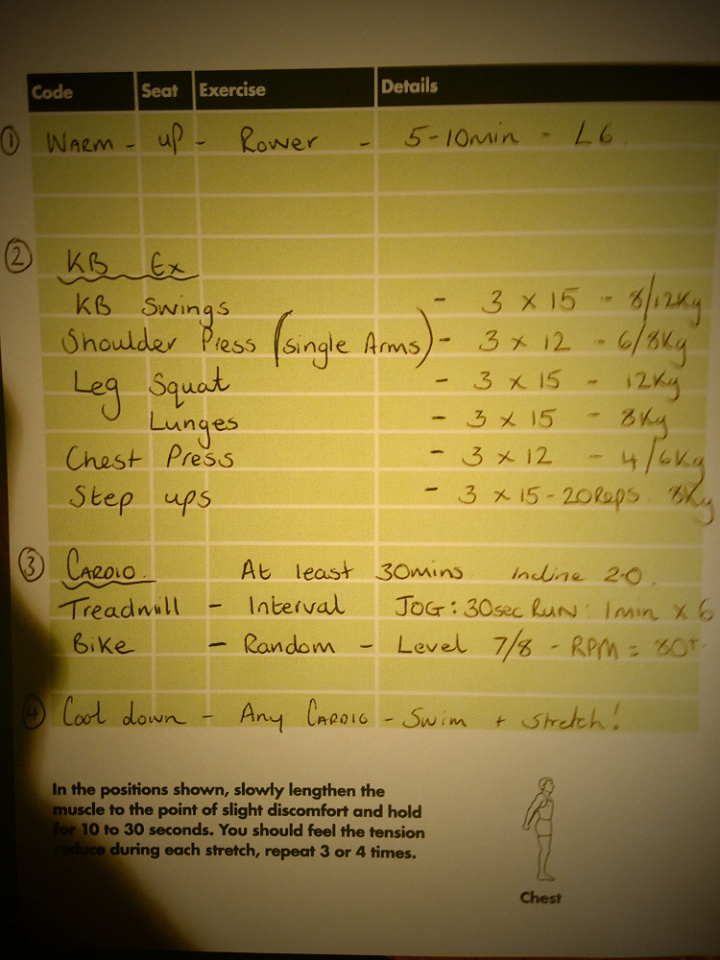 Code Seat Exercise Details
① WARM - up - Rower - 5-10min - L6.
② KB Ex
KB Swings - 3 x 15 - 8/12Kg
Shoulder Press (single Arms) - 3 x 12 - 6/8Kg
Leg Squat - 3 x 15 - 12Kg
Lunges - 3 x 15 - 8Kg
Chest Press - 3 x 12 - 4/6Kg
Step ups - 3 x 15-20Reps 8Kg
③ CARDIO. At least 30mins Incline 2.0.
Treadmill - Interval JOG: 30sec RUN: 1min x 6
Bike - Random - Level 7/8 - RPM = 80+
④ Cool down - Any CARDIO - Swim + stretch!
In the positions shown, slowly lengthen the
muscle to the point of slight discomfort and hold
for 10 to 30 seconds. You should feel the tension
reduce during each stretch, repeat 3 or 4 times.
Chest